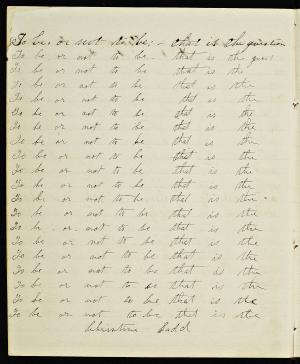 To be, or not to be; - that is the question
To be or not to be - that is the ques
To be or not to be that is the
To be or not to be that is the
To be or not to be that is the
To be or not to be that is the
To be or not to be that is the
To be or not to be that is the
To be or not to be that is the
To be or not to be that is the
To be or not to be that is the
To be or not to be that is the
To be or not to be that is the
To be or not to be that is the
To be or not to be that is the
To be or not to be that is the
To be or not to be that is the
To be or not to be that is the
To be or not to be that is the
To be or not to be that is the
Christine